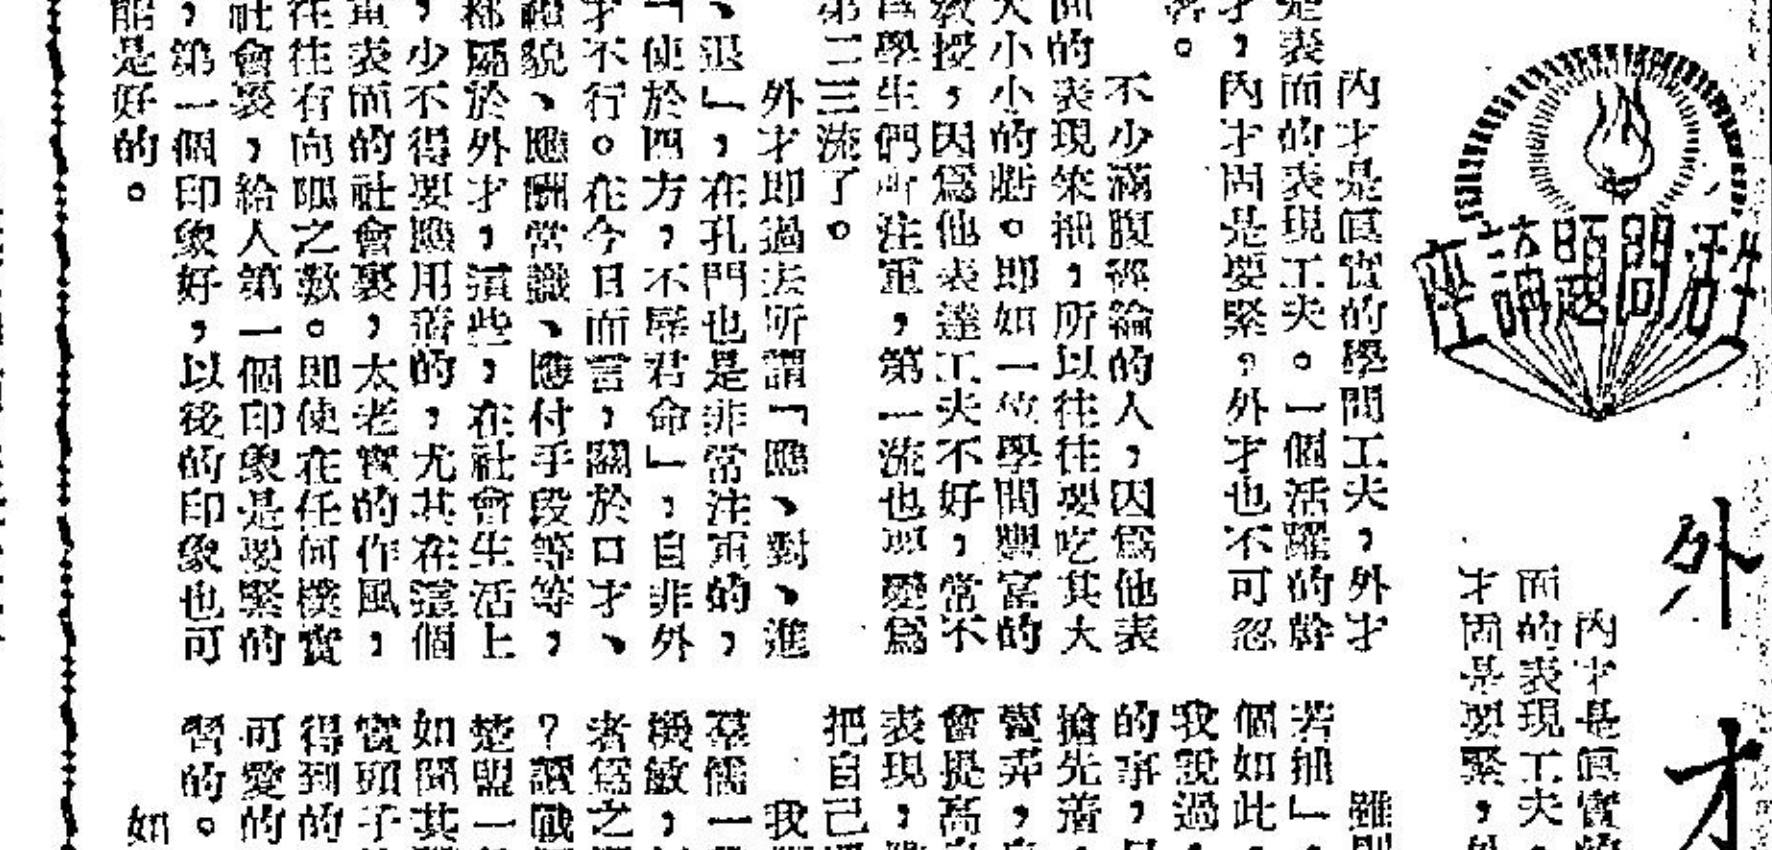 生活問題講座
外才
內才是眞實的
面的表現工夫。
才固是要緊，外
內才是眞實的學問工夫，外才
是表面的表現工夫。一個活躍的幹
才，內才固是要緊，外才也不可忽
畧。
不少滿腹經綸的人，因爲他表
面的表現笨拙，所以往往要吃其大
大小小的虧。即如一位學問豐富的
教授，因爲他表達工夫不好，常不
爲學生們所注重，第一流也要變爲
第二三流了。
外才即過去所謂「應、對、進
、退」，在孔門也是非常注重的，
「使於四方，不辱君命」，自非外
才不行。在今日而言，關於口才、
禮貌、應酬常識、應付手段等等，
都屬於外才，這些，在社會生活上
，少不得要應用着的，尤其在這個
重表面的社會裏，太老實的作風，
往往有向隅之歎。即使在任何樸實
社會裏，給人第一個印象是要緊的
，第一個印象好，以後的印象也可
能是好的。
雖則
若拙」。
個如此
我說過
的事，
搶先着
賣弄，
會提高
表現，
把自己
我
羣儒一
機敏，
者爲之
？讀戰
楚盟一
如聞其
實頭子
得到的
可愛的
習的。
如